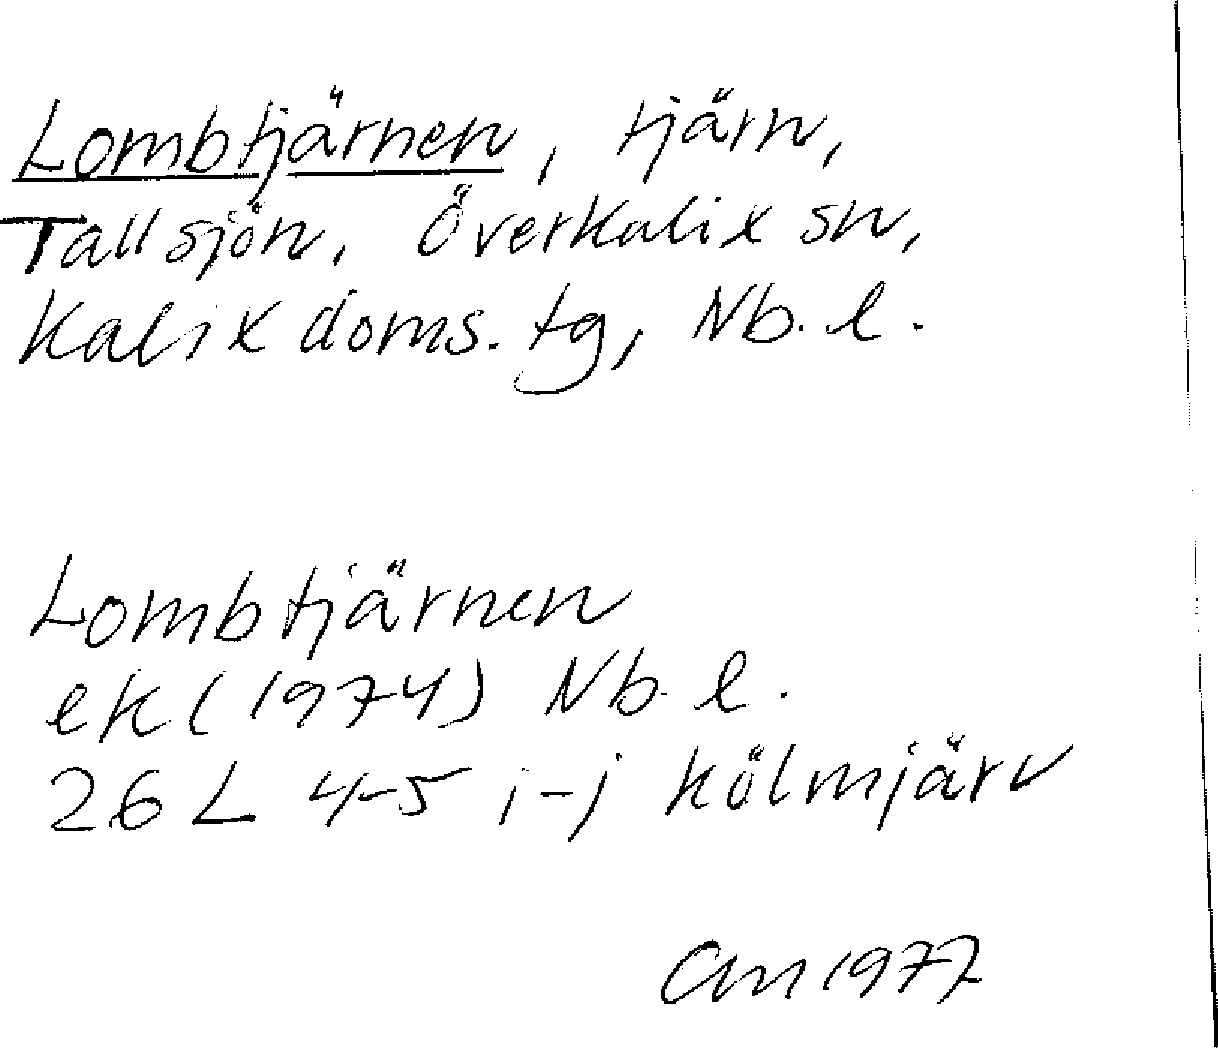 Lombtjärnen, tjärn,
Tallsjön, Överkalix sn,
Kalix doms. tg, Nb. l.
Lombtjärnen
ek (1974) Nb. l.
26 L 4-5 i-j Kölmjärv
CM 1977